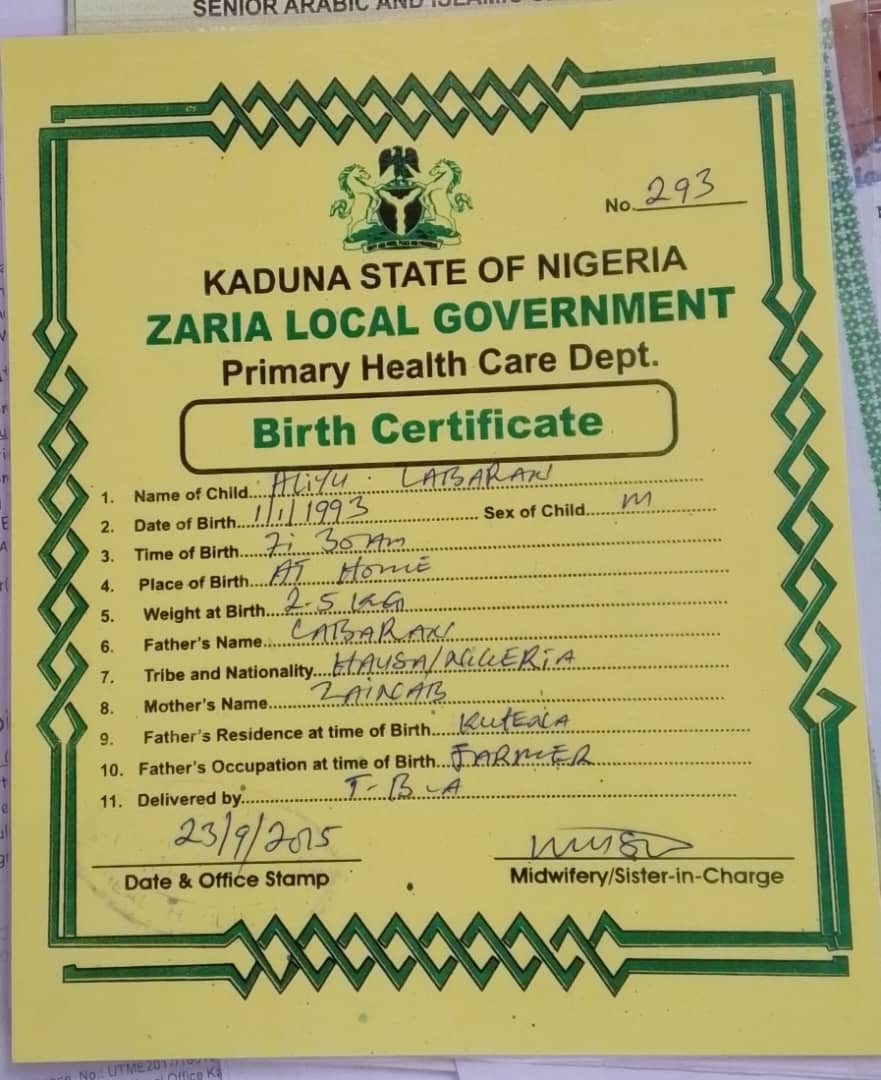 SENIOR ARABIC AND
No. 293
KADUNA STATE OF NIGERIA
ZARIA LOCAL GOVERNMENT
Primary Health Care Dept.
Birth Certificate
1. Name of Child... ALIYU LABARAN
2. Date of Birth... 1/1/1993 Sex of Child... M
3. Time of Birth... 7:30AM
4. Place of Birth... AT HOME
5. Weight at Birth... 2.5 KG
6. Father's Name... LABARAN
7. Tribe and Nationality... HAUSA/NIGERIA
8. Mother's Name... ZAINAB
9. Father's Residence at time of Birth...
10. Father's Occupation at time of Birth... FARMER
11. Delivered by... T-B-A
23/9/2015
Date & Office Stamp Midwifery/Sister-in-Charge
No.: UTME2017/
Office